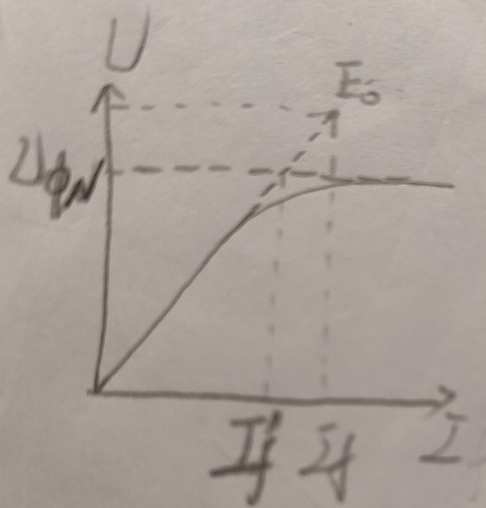 U
E₀
UφN
If' If I